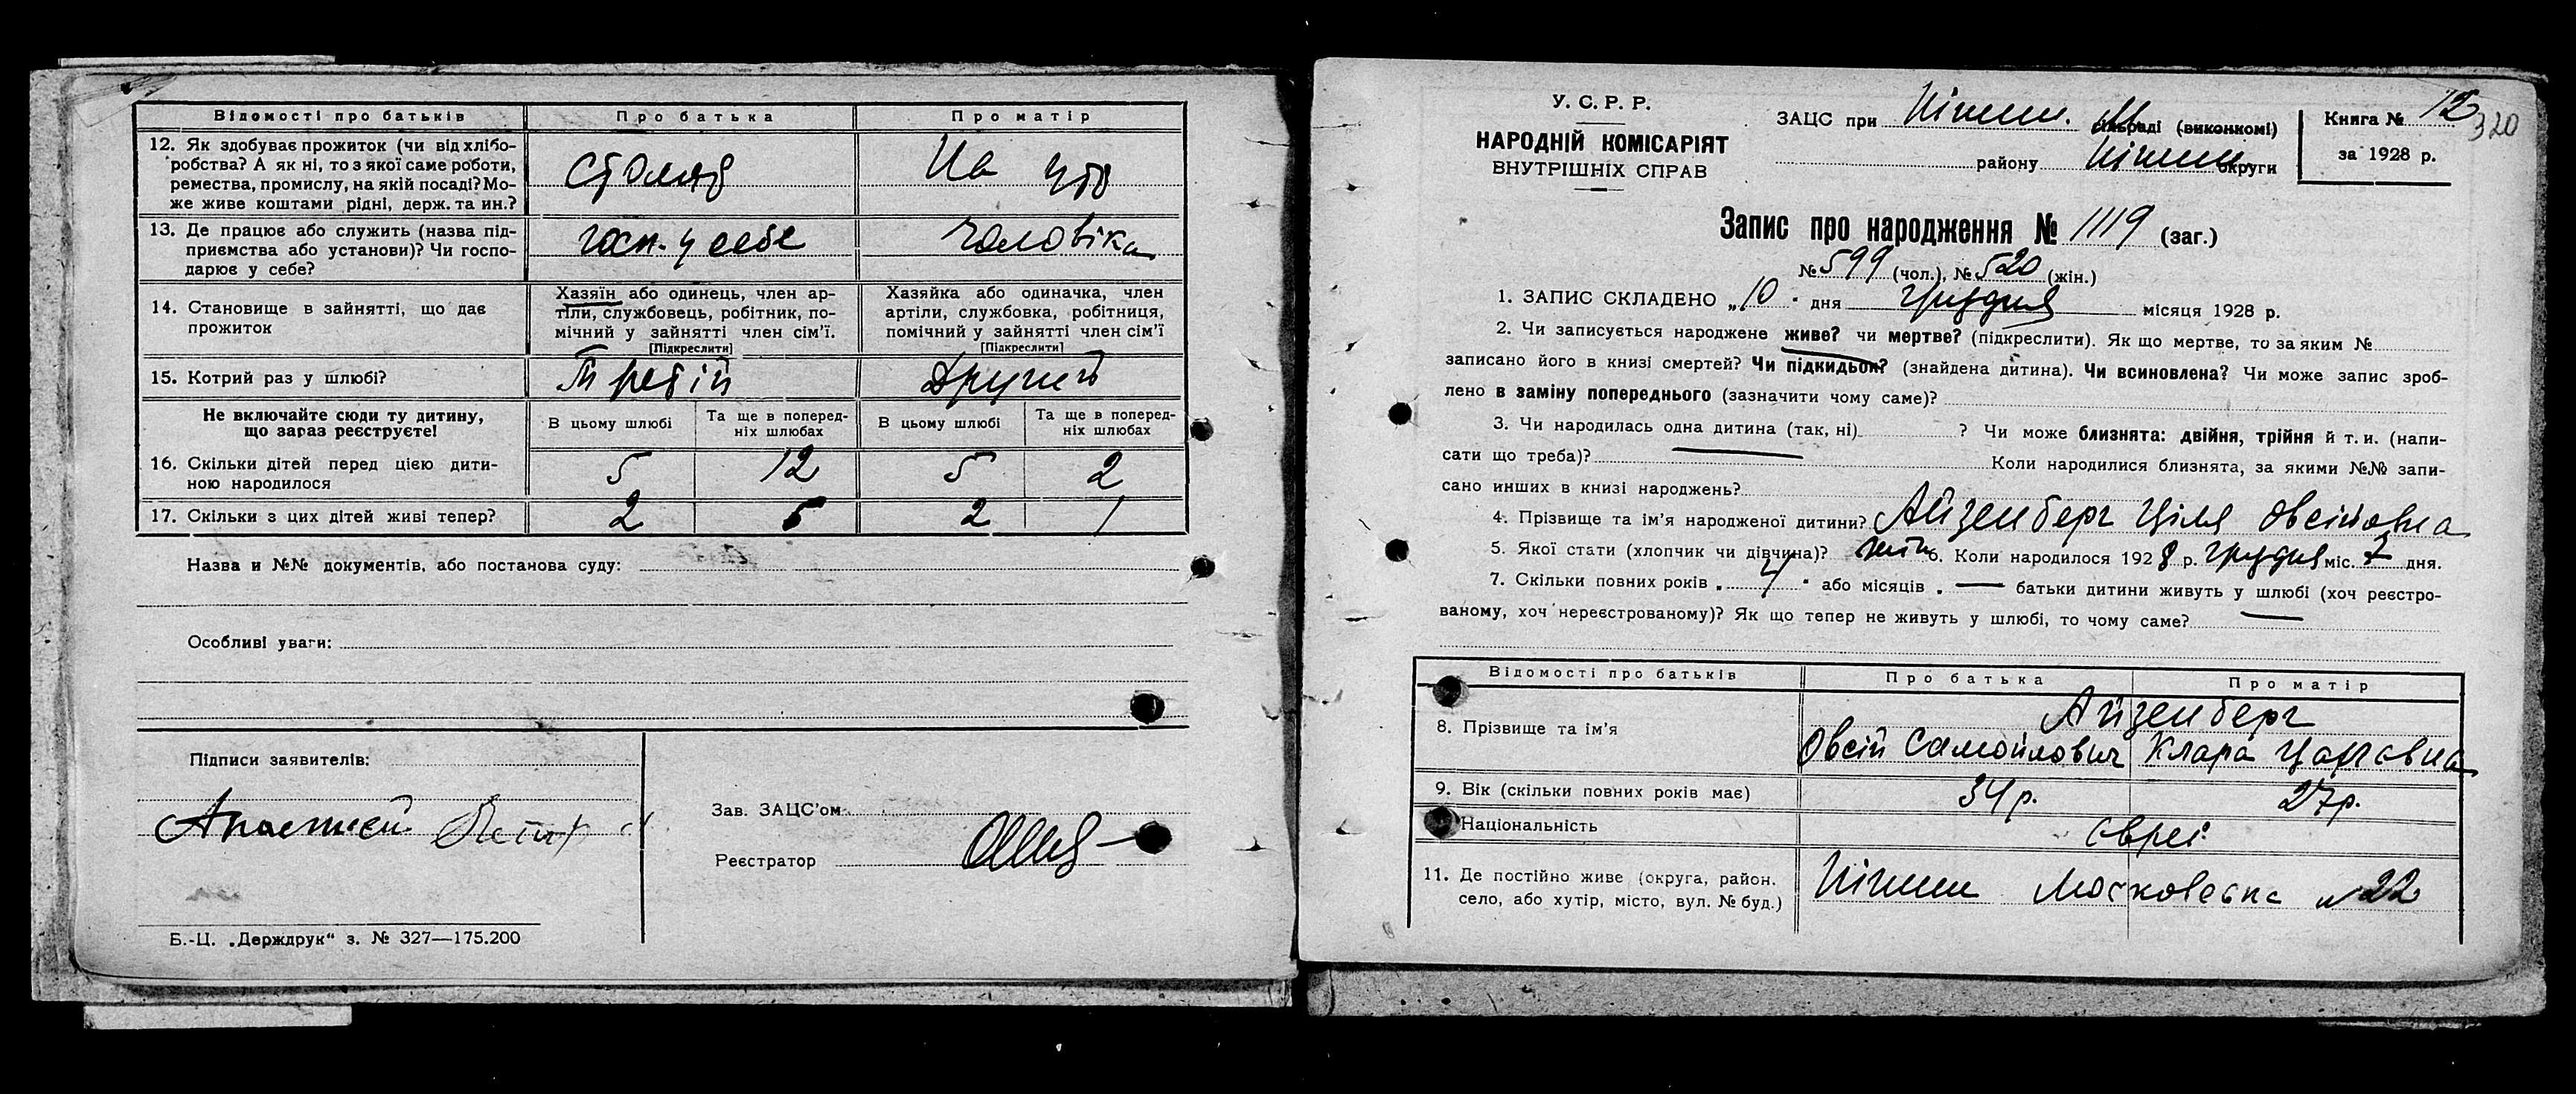 Відомості про батьків Про батька Про матір
12. Як здобуває прожиток (чи від хлібо-
робства? А як ні, то з якої саме роботи,
ремества, промислу, на якій посаді? Мо-
же живе коштами рідні, держ. та ин.?
столяр На утр
13. Де працює або служить (назва під-
приємства або установи)? Чи госпо-
дарює у себе?
госп. у себе чоловіка
14. Становище в зайнятті, що дає
прожиток
Хазяїн або одинець, член ар-
тіли, службовець, робітник, по-
мічний у зайнятті член сім'ї.
[Підкреслити]
Хазяйка або одиначка, член
артіли, службовка, робітниця,
помічний у зайнятті член сім'ї
[Підкреслити]
15. Котрий раз у шлюбі? Третій Другий
Не включайте сюди ту дитину,
що зараз реєструєте!
В цьому шлюбі Та ще в поперед-
ніх шлюбах В цьому шлюбі Та ще в поперед-
ніх шлюбах
16. Скільки дітей перед цією дити-
ною народилося 5 12 5 2
17. Скільки з цих дітей живі тепер? 2 5 2 1
Назва и №№ документів, або постанова суду:
Особливі уваги:
Підписи заявителів:
Зав. ЗАЦС'ом
Реєстратор
Б.-Ц. „Держдрук“ з. № 327—175.200
У. С. Р. Р.
НАРОДНІЙ КОМІСАРІЯТ
ВНУТРІШНІХ СПРАВ
ЗАЦС при Ніжин. М. міськраді (виконкомі)
району Ніжин округи
Книга № 12
за 1928 р.
320
Запис про народження № 1119 (заг.)
№ 599 (чол.), № 520 (жін.)
1. ЗАПИС СКЛАДЕНО „10“ дня грудня місяця 1928 р.
2. Чи записується народжене живе? чи мертве? (підкреслити). Як що мертве, то за яким №
записано його в книзі смертей? Чи підкидьок? (знайдена дитина). Чи всиновлена? Чи може запис зроб-
лено в заміну попереднього (зазначити чому саме)?
3. Чи народилась одна дитина (так, ні) ? Чи може близнята: двійня, трійня й т. и. (напи-
сати що треба)? Коли народилися близнята, за якими №№ запи-
сано инших в книзі народжень?
4. Прізвище та ім'я народженої дитини? Айзенберг Ціля Овсіївна
5. Якої стати (хлопчик чи дівчина)? жін 6. Коли народилося 1928 р. грудня міс. 7 дня.
7. Скільки повних років „4“ або місяців „— батьки дитини живуть у шлюбі (хоч реєстро-
ваному, хоч нереєстрованому)? Як що тепер не живуть у шлюбі, то чому саме? —
Відомості про батьків Про батька Про матір
8. Прізвище та ім'я
Айзенберг
Овсій Самойлович Клара
9. Вік (скільки повних років має) 34 р. 27 р.
Національність євреї
11. Де постійно живе (округа, район.
село, або хутір, місто, вул. № буд.)
Ніжин Московська № 22